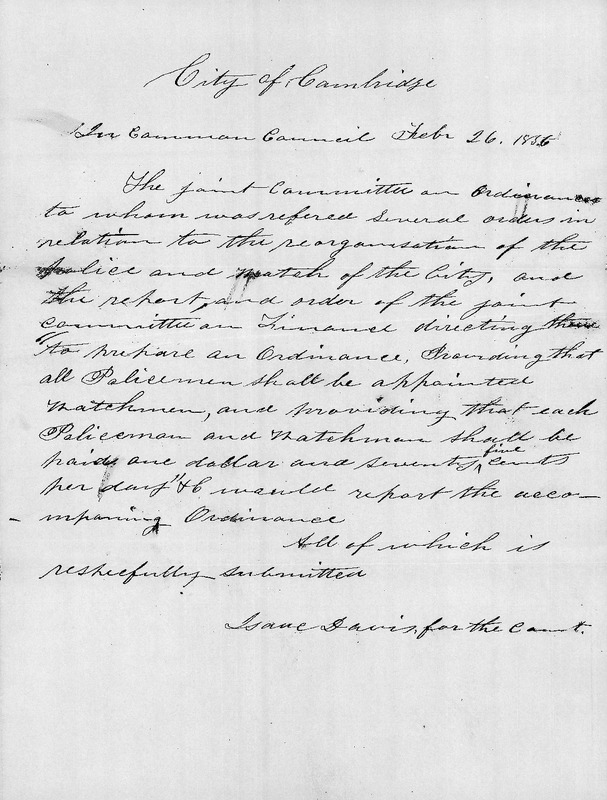 City of Cambridge
In Common Council Febr 26. 1856
The joint Committee on Ordinances
to whom was refered several orders in
relation to the reorganisation of the
Police and watch of the City, and
the report, and order of the joint
committee on Finance directing them
"to prepare an Ordinance, Providing that
all Policemen shall be appointed
Watchmen, and providing that each
Policeman and Watchman shall be
paid one dollar and seventy five cents
per day" &C would report the acco-
mpaning Ordinance
All of which is
respecfully submitted
Isaac Davis, for the Comt.